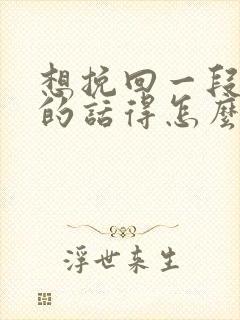 想挽回一段
的話得怎麼
浮世来生